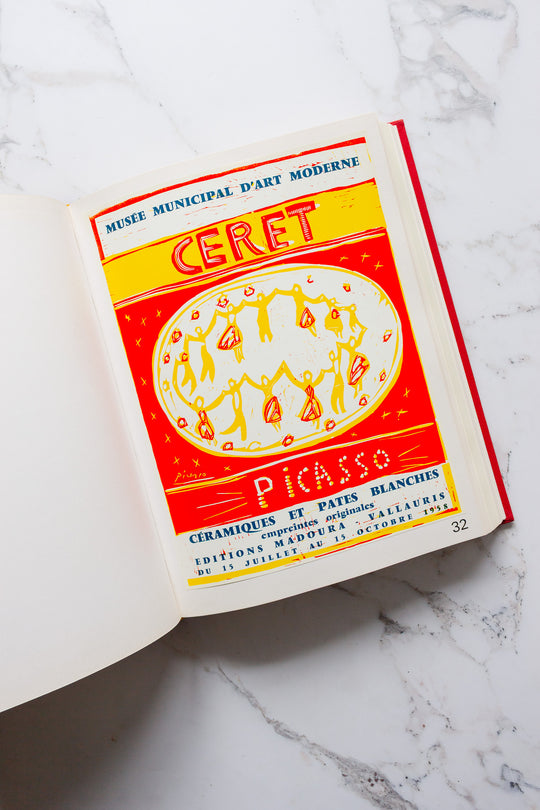 MUSÉE MUNICIPAL D'ART MODERNE
CERET
Picasso
PiCASSO
CÉRAMIQUES ET PATES BLANCHES
empreintes originales
EDITIONS MADOURA - VALLAURIS
DU 15 JUILLET AU 15 OCTOBRE 1958
32